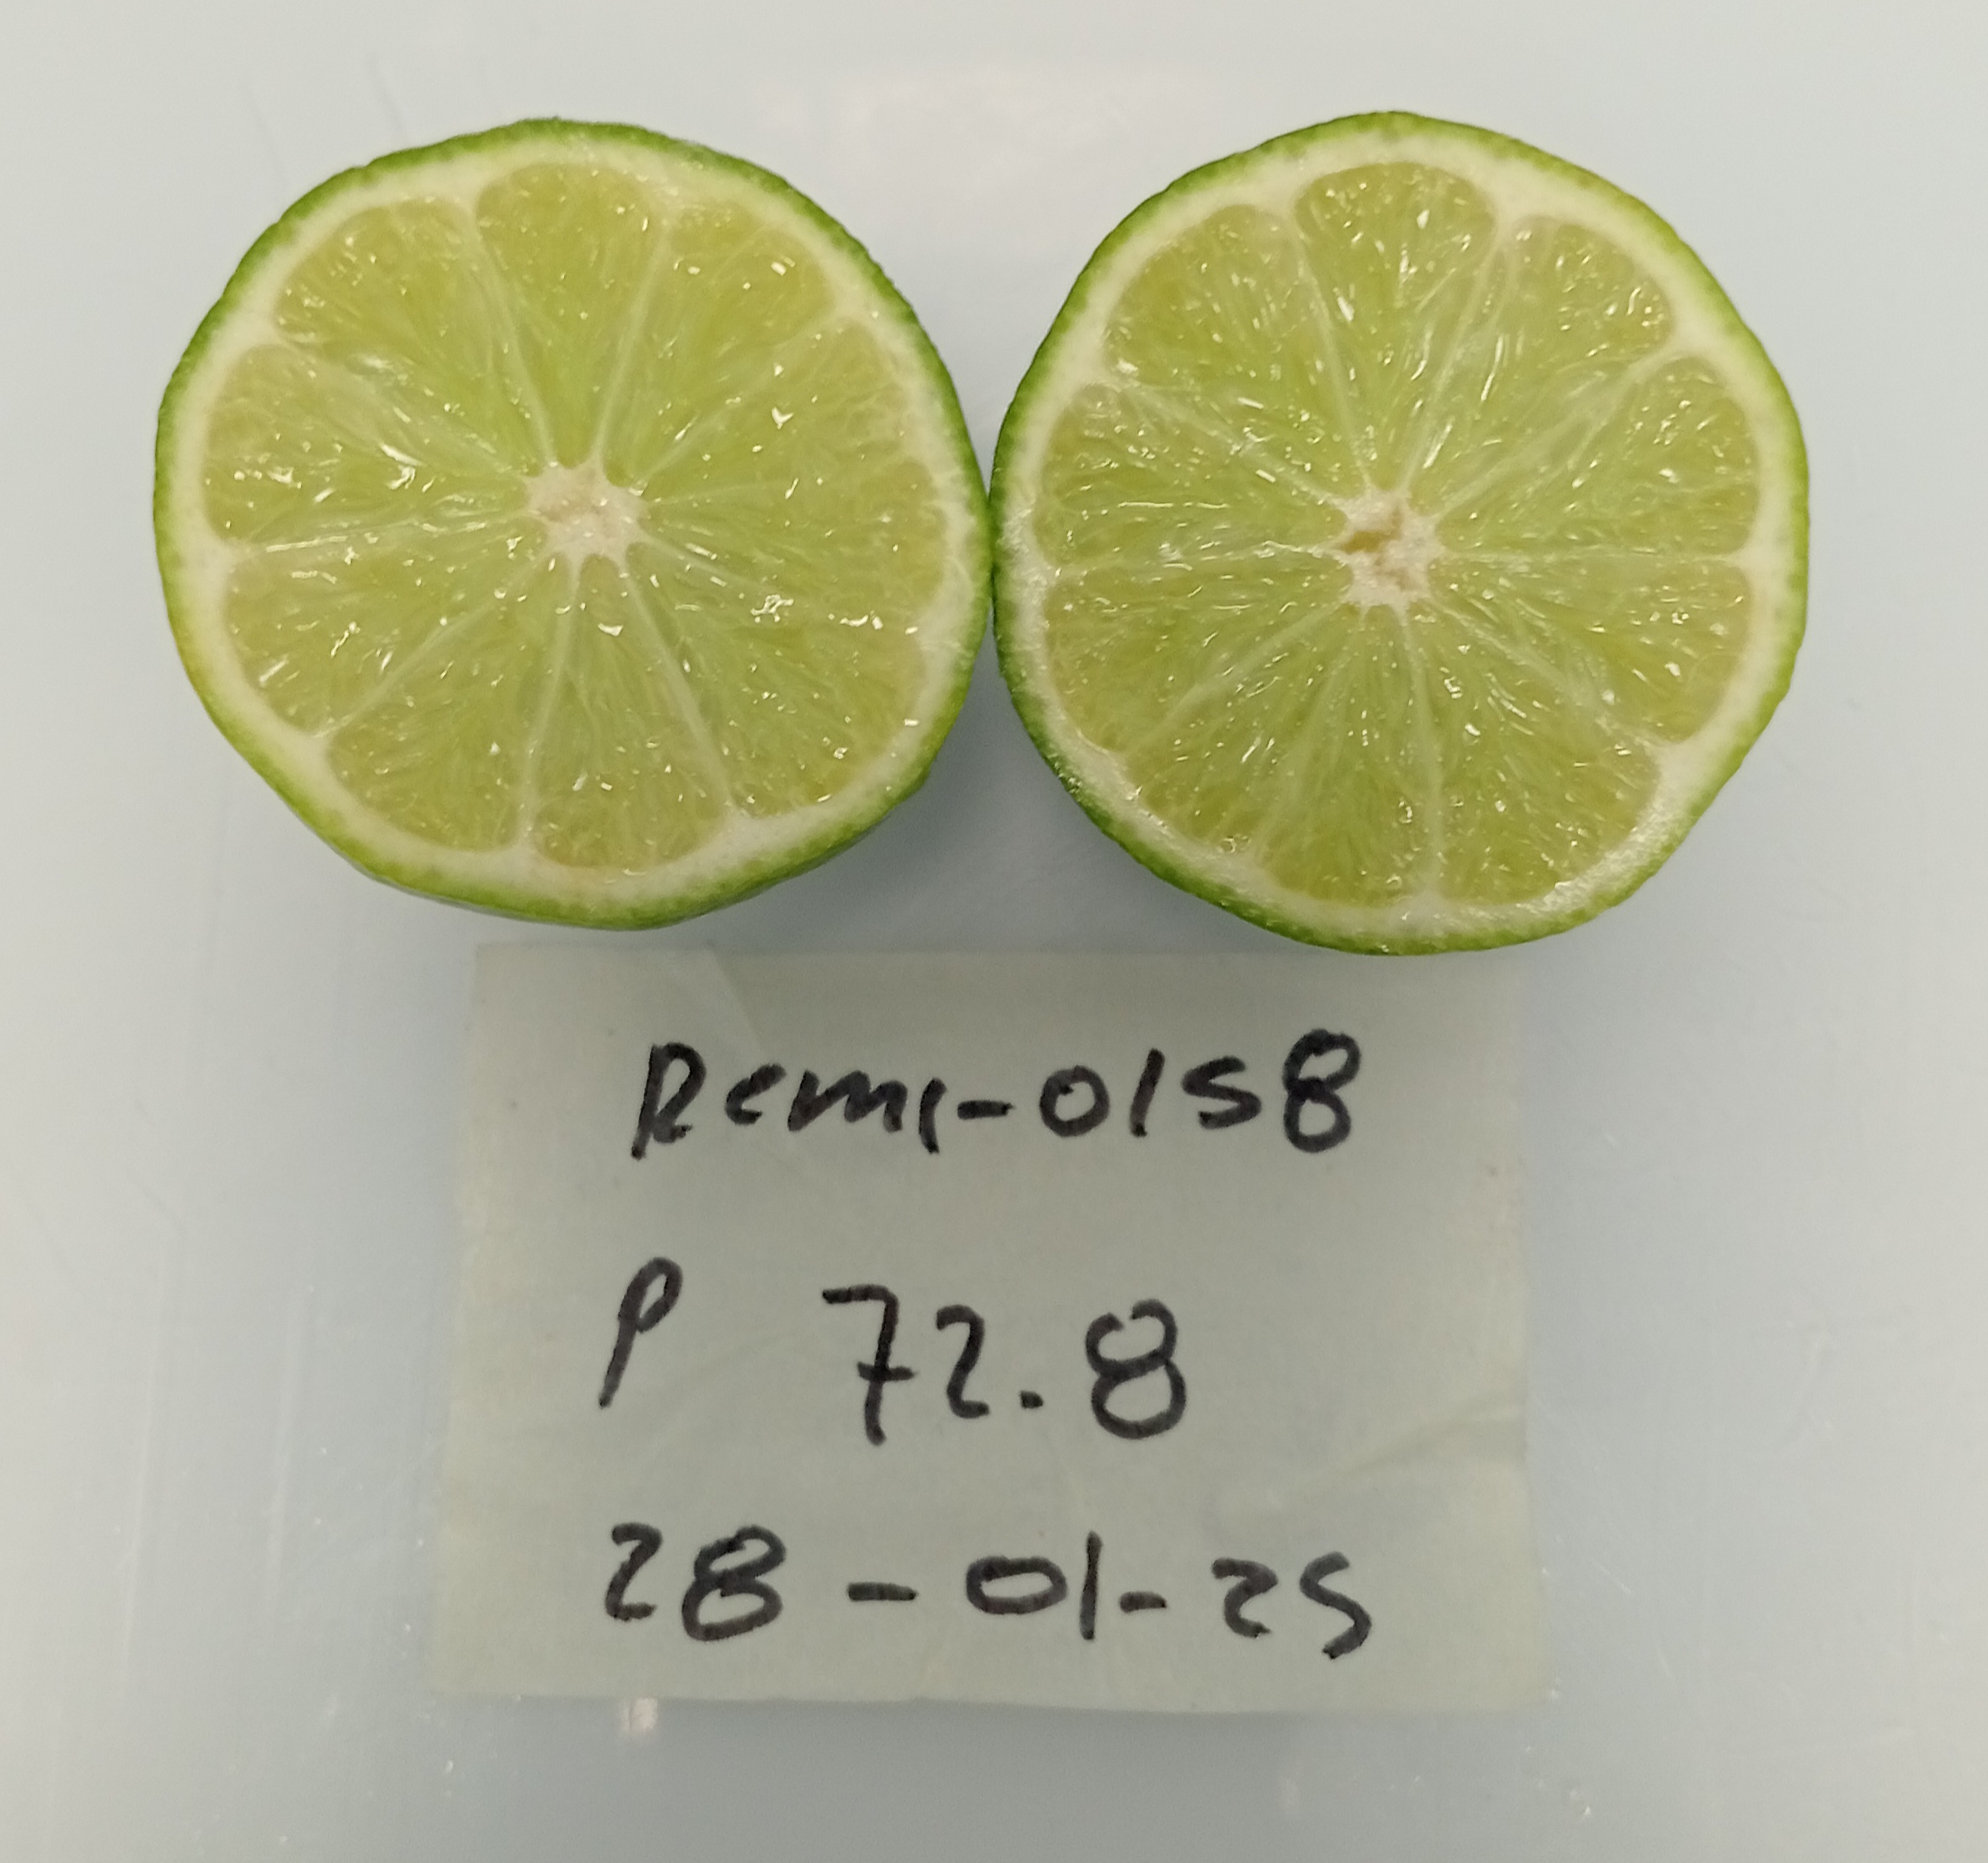 Remi-0158
P 72.8
28-01-25